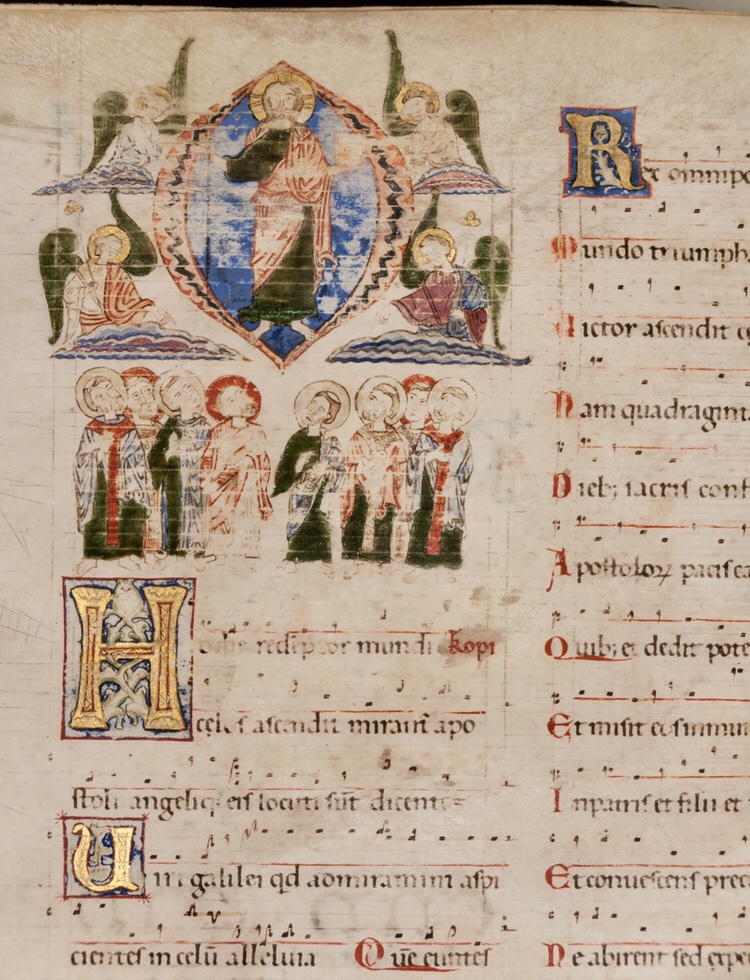 Hodie redēptor mundi kopi
celos ascendit mirantˉ apo
stoli angeliq; eis locuti sūt dicentes
Uiri galilei qd admiramini aspi
cientes in celū alleluia Que euntes
Rex omnipo
Mundo triumph
Uictor ascendit
Nam quadragint
Dieb; sacris conf
Apostoloꝝ
Quib; et dedit pote
Et misit eos
In patris et filii et
Et conuescens prec
Ne abirent sed